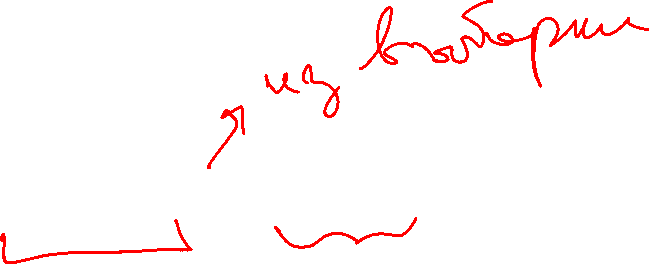 из выборки